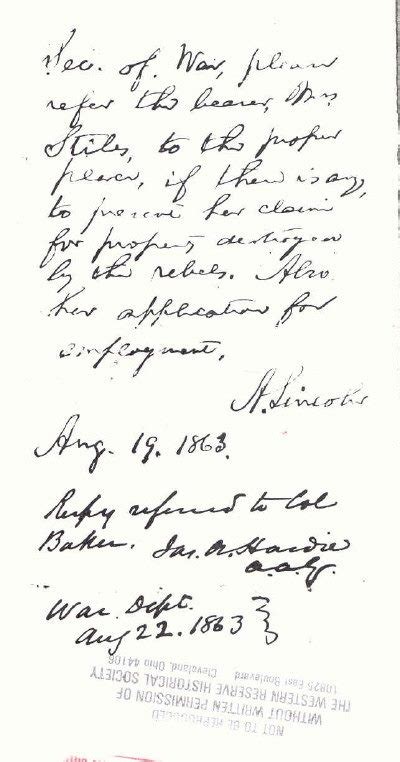 Sec. of War, please
refer the bearer, Mrs
Stiles, to the proper
place, if there is any,
to present her claim
for property destroyed
by the rebels. Also
her application for
employment.
A. Lincoln
Aug. 19. 1863.
Respy referred to Col
Baker. Jas. A. Hardie
a.a.G.
War Dept.
Aug 22. 1863
NOT TO BE REPRODUCED
WITHOUT WRITTEN PERMISSION OF
THE WESTERN RESERVE HISTORICAL SOCIETY
10825 East Boulevard Cleveland, Ohio 44106